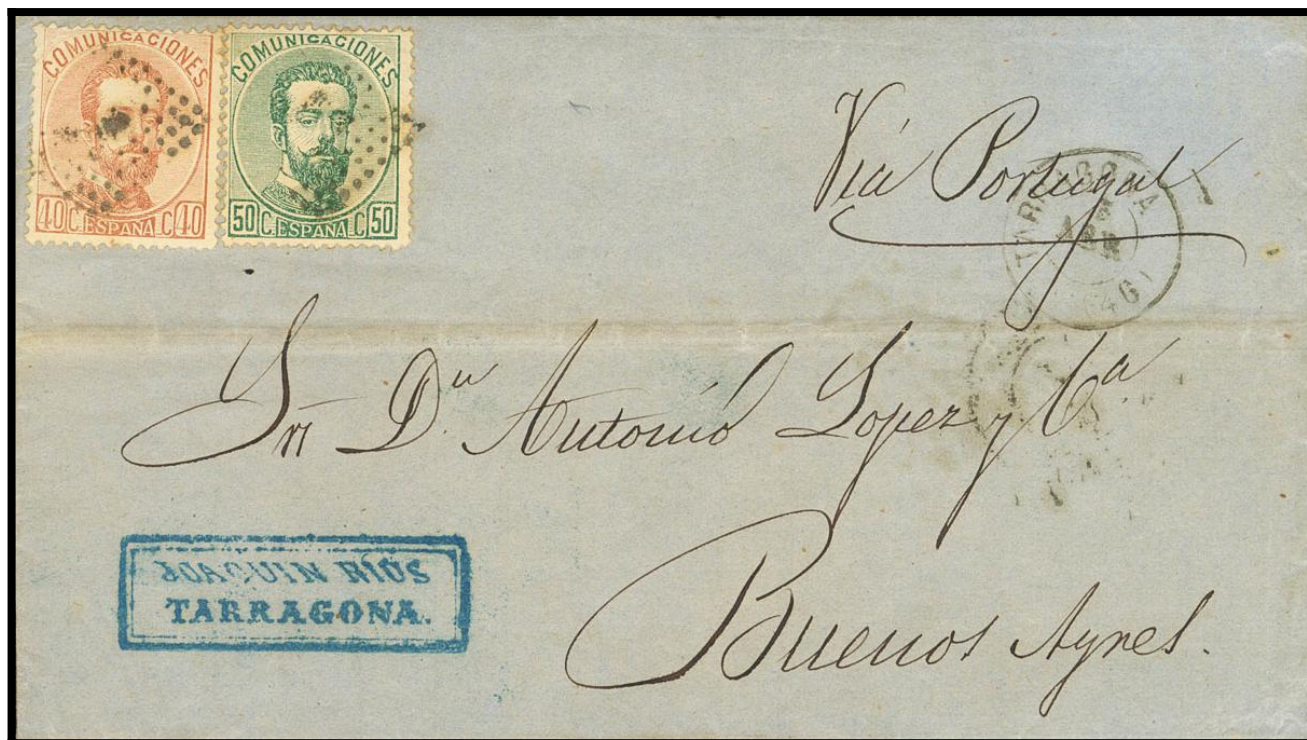 COMUNICACIONES
40 C. ESPAÑA C 40
COMUNICACIONES
50 C. ESPAÑA C 50
Via Portugal
TARRAGONA
ABR
Sr. Dn. Antonio Lopez y Ca.
JOAQUIN RIOS
TARRAGONA.
Buenos Ayres.